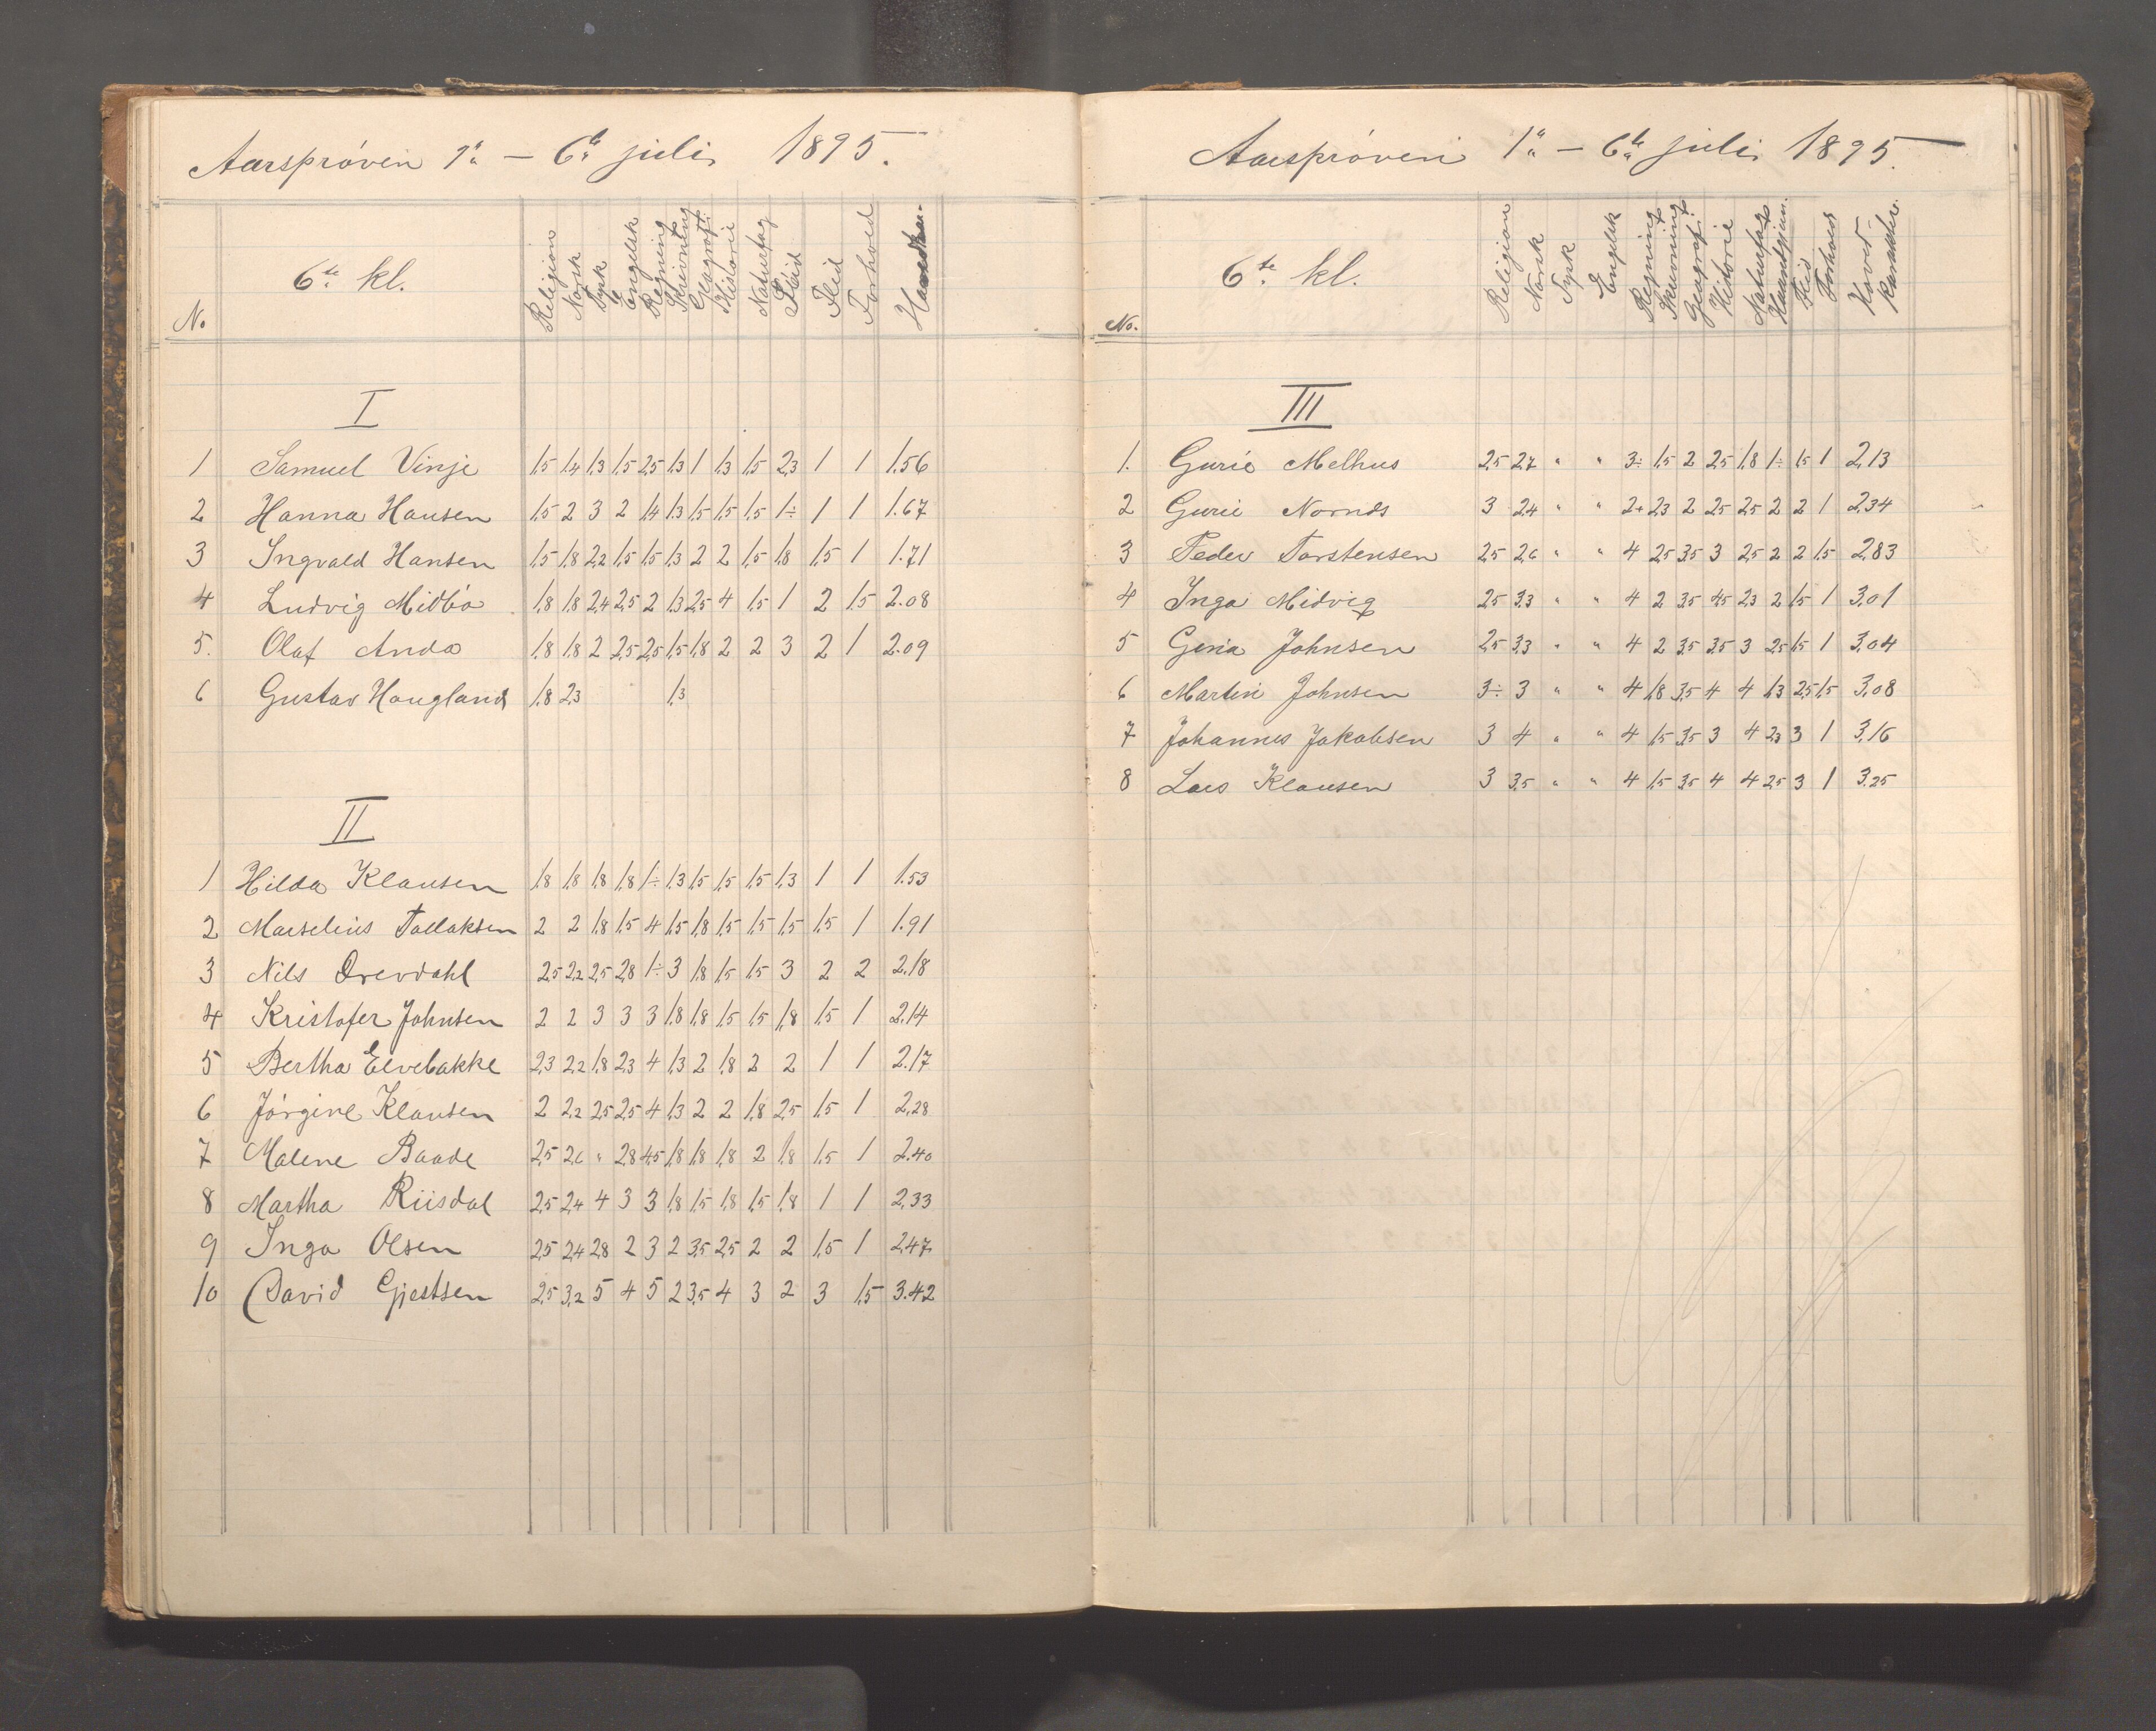 Aarsprøven 1te – 6te juli 1895.
No 6te kl. Religion Norsk Tysk Engelsk Regning Skrivning Geografi Historie Naturfag Sløid Flid Forhold
I
1 Samuel Vinje 1,5 1,4 1,3 1,5 2,5 1,3 1 1,3 1,5 2,3 1 1 1.56
2 Hanna Hansen 1,5 2 3 2 1,4 1,3 1,5 1,5 1,5 1÷ 1 1 1.67
3 Ingvald Hansen 1,5 1,8 2,2 1,5 1,5 1,3 2 2 1,5 1,8 1,5 1 1.71
4 Ludvig Midbø 1,8 1,8 2,4 2,5 2 1,3 2,5 4 1,5 1 2 1,5 2.08
5. Olaf Anda 1,8 1,8 2 2,5 2,5 1,5 1,8 2 2 3 2 1 2.09
6 Gustav Haugland 1,8 2,3 1,3
II
1 Hilda Klausen 1,8 1,8 1,8 1,8 1÷ 1,3 1,5 1,5 1,5 1,3 1 1 1.53
2 Marselius Tallaksen 2 2 1,8 1,5 4 1,5 1,8 1,5 1,5 1,5 1,5 1 1.91
3 Nils Drevdahl 2,5 2,2 2,5 2,8 1÷ 3 1,8 1,5 1,5 3 2 2 2.18
4 Kristofer Johnsen 2 2 3 3 3 1,8 1,8 1,5 1,5 1,8 1,5 1 2.14
5 Bertha Elvebakke 2,3 2,2 1,8 2,3 4 1,3 2 1,8 2 2 1 1 2.17
6 Jørgine Klausen 2 2,2 2,5 2,5 4 1,3 2 2 1,8 2,5 1,5 1 2,28
7 Malene Baade 2,5 2,6 " 2,8 4,5 1,8 1,8 1,8 2 1,8 1,5 1 2.40
8 Martha Riisdal 2,5 2,4 4 3 3 1,8 1,5 1,8 1,5 1,8 1 1 2,33
9 Inga Olsen 2,5 2,4 2,8 2 3 2 3,5 2,5 2 2 1,5 1 2,47
10 David Gjestsen 2,5 3,2 5 4 5 2 3,5 4 3 2 3 1,5 3.42
Aarsprøven 1te – 6te juli 1895.
No. 6te kl. Religion Norsk Tysk Engelsk Regning Skrivning Geografi Historie Naturfag Flid Forhold Hoved-karakter.
III
1. Gurie Melhus 2,5 2,7 " " 3÷ 1,5 2 2,5 1,8 1÷ 1,5 1 2,13
2 Gurie 3 2,4 " " 2+ 2,3 2 2,5 2,5 2 2 1 2,34
3 Peder Torstensen 2,5 2,6 " " 4 2,5 3,5 3 2,5 2 2 1,5 2,83
4 Inga Midvig 2,5 3,3 " " 4 2 3,5 4,5 2,3 2 1,5 1 3,01
5 Gina Johnsen 2,5 3,3 " " 4 2 3,5 3,5 3 2,5 1,5 1 3,04
6 Martin Johnsen 3÷ 3 " " 4 1,8 3,5 4 4 1,3 2,5 1,5 3,08
7 Johannes Jakobsen 3 4 " " 4 1,5 3,5 3 4 2,3 3 1 3,16
8 Lars Klausen 3 3,5 " " 4 1,5 3,5 4 4 2,5 3 1 3.25